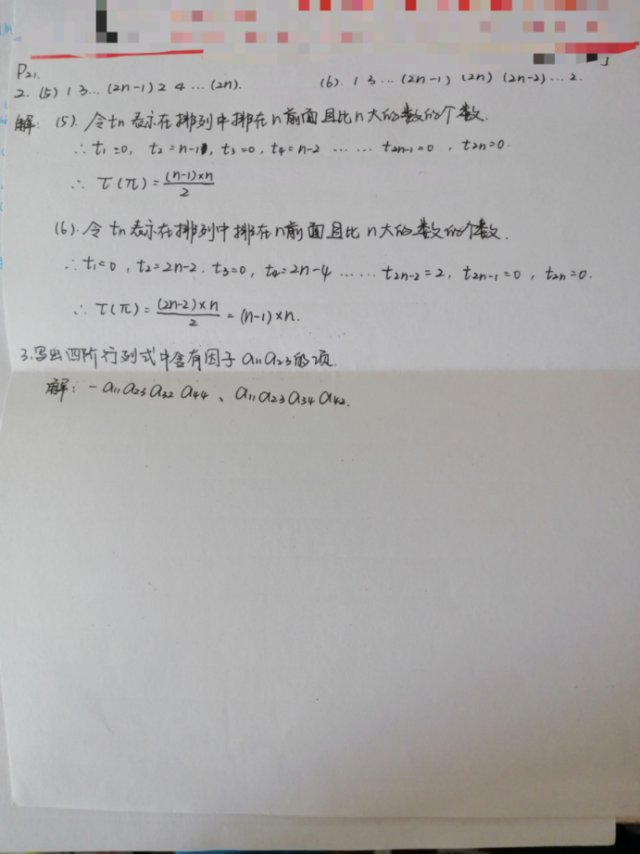 P21.
2. (5) 1 3 … (2n-1) 2 4 … (2n). (6). 1 3 … (2n-1) (2n) (2n-2) … 2.
解: (5). 令 tn 表示在排列中排在 n 前面且比 n 大的数的个数.
∴ t₁=0, t₂=n-1, t₃=0, t₄=n-2 …… t₂ₙ₋₁=0, t₂ₙ=0.
∴ τ(π)=(n-1)×n/2
(6). 令 tn 表示在排列中排在 n 前面且比 n 大的数的个数.
∴ t₁=0, t₂=2n-2. t₃=0, t₄=2n-4 …… t₂ₙ₋₂=2, t₂ₙ₋₁=0, t₂ₙ=0.
∴ τ(π)=(2n-2)×n/2=(n-1)×n.
3.写出四阶行列式中含有因子 a₁₁a₂₃的项.
解: -a₁₁a₂₃a₃₂a₄₄、a₁₁a₂₃a₃₄a₄₂.